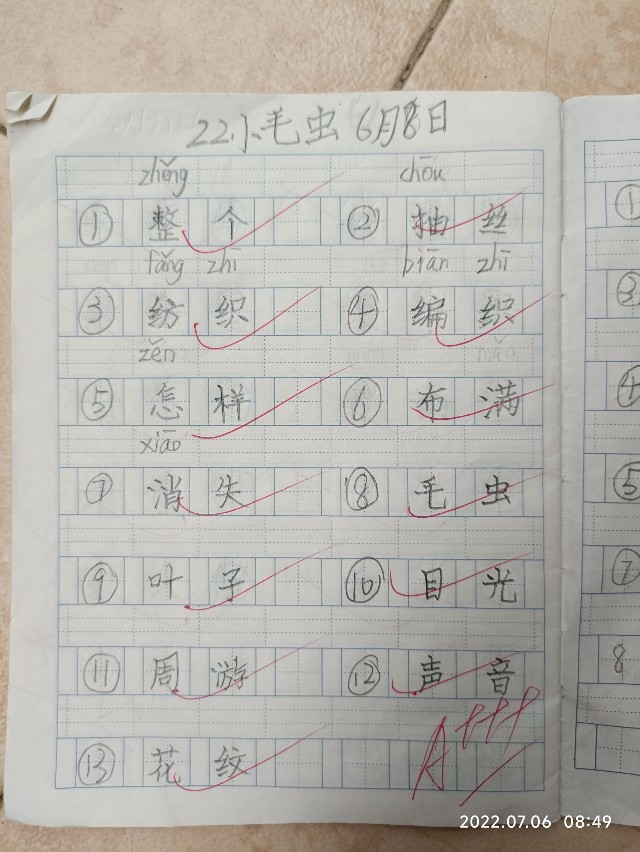 22小毛虫 6月8日
zhěng chōu
① 整个 ② 抽丝
fǎng zhī biān zhī
③ 纺织 ④ 编织
zěn mǎn
⑤ 怎样 ⑥ 布满
xiāo
⑦ 消失 ⑧ 毛虫
⑨ 叶子 ⑩ 目光
⑪ 周游 ⑫ 声音
⑬ 花纹
A+++
①
③
④
⑤
⑦
8
2022.07.06 08:49